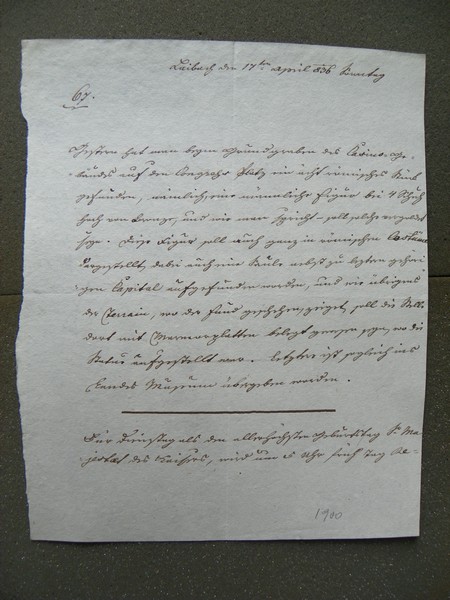 Laibach den 17ten April 836 Sonntag
67.
Gestern hat man beym Grundgraben des Casinoge-
bäudes auf dem Congress Platz ein ächt römisches Stück
gefunden, nämlich eine männliche Figur bei 4 Schuh
hoch von Bronze, und wie man spricht soll solche vergoldet
seyn. Diese Figur soll auch ganz im römischen Costüme
dargestellt, dabei auch eine Säule nebst zu letzten gehöri-
gen Capital aufgefunden worden, und wie übrigens
der Terrain, wo der Fund geschehen zeiget, soll die Stelle
dort mit Marmorplatten belegt gewesen seyn, wo die
Statue aufgestellt war. Letztere ist sogleich ins
Landes Museum übergeben worden.
Für Dienstag als den allerhöchsten Geburtstag Sr. Ma-
jestät des Kaisers, wird um 5 Uhr früh Tag Re-
1900